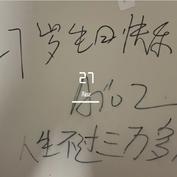 7岁生日快乐
27
人生不过三万多